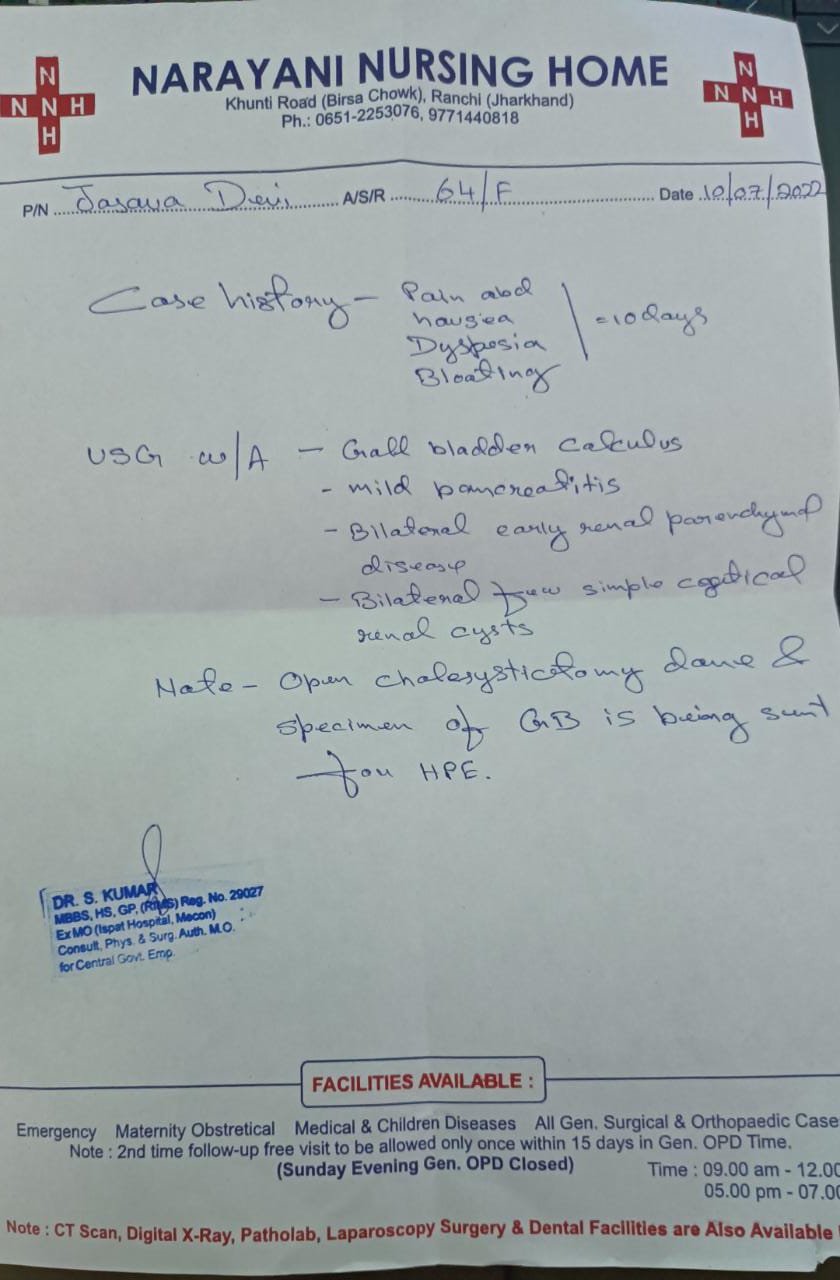 N
N N H
H
NARAYANI NURSING HOME
Khunti Road (Birsa Chowk), Ranchi (Jharkhand)
Ph.: 0651-2253076, 9771440818
N
N N H
H
P/N ..... Devi ..... A/S/R ..... 64/F ..... Date .10/07/2022
Case history - Pain abd
nausea
Dyspesia
Bloating
=10 days
USG w/A - Gall bladder calculus
- mild pancreatitis
- Bilateral early renal parenchymal
disease
- Bilateral few simple cortical
renal cysts
Note - Open cholesysticotomy done &
specimen of GB is being sent
for HPE.
DR. S. KUMAR
MBBS, HS, GP, (RIMS) Reg. No. 29027
Ex MO (Ispat Hospital, Mecon)
Consult, Phys. & Surg. Auth. M.O.
for Central Govt. Emp.
FACILITIES AVAILABLE :
Emergency Maternity Obstretical Medical & Children Diseases All Gen. Surgical & Orthopaedic Case
Note : 2nd time follow-up free visit to be allowed only once within 15 days in Gen. OPD Time.
(Sunday Evening Gen. OPD Closed) Time : 09.00 am - 12.00
05.00 pm - 07.00
Note : CT Scan, Digital X-Ray, Patholab, Laparoscopy Surgery & Dental Facilities are Also Available